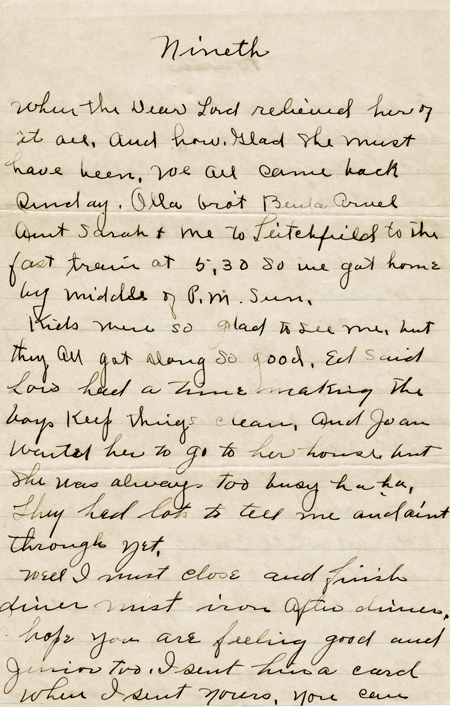 Nineth
When the Dear Lord relieved her of
it all, And how Glad she must
have been, we all came back
Sunday. Olla bro't Beula Aruel
Aunt Sarah & me to Leitchfield to the
fast train at 5,30 So we got home
by middle of P.M. Sun.
Kids were so glad to see me, but
they All got along So good, Ed Said
Lois had a time making the
boys Keep things clean, And Joan
wanted her to go to her house but
she was always too busy ha ha,
They had lots to tell me and aint
through yet,
Well I must close and finish
diner must iron After dinner,
hope you are feeling good and
Junior too. I sent him a card
when I sent yours, you can